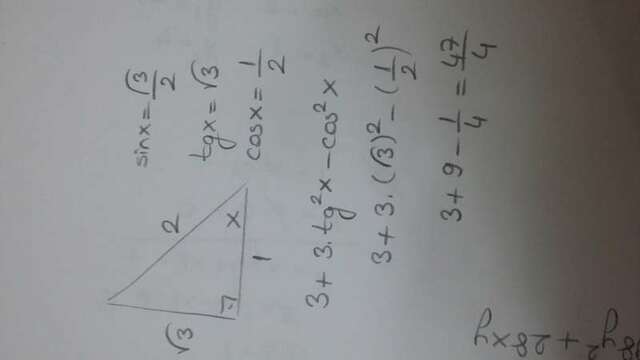 √3
2
x
1
sinx = √3/2
tgx = √3
cosx = 1/2
3 + 3.tg²x - cos²x
3 + 3.(√3)² - (1/2)²
3 + 9 - 1/4 = 47/4
8y² + 28xy